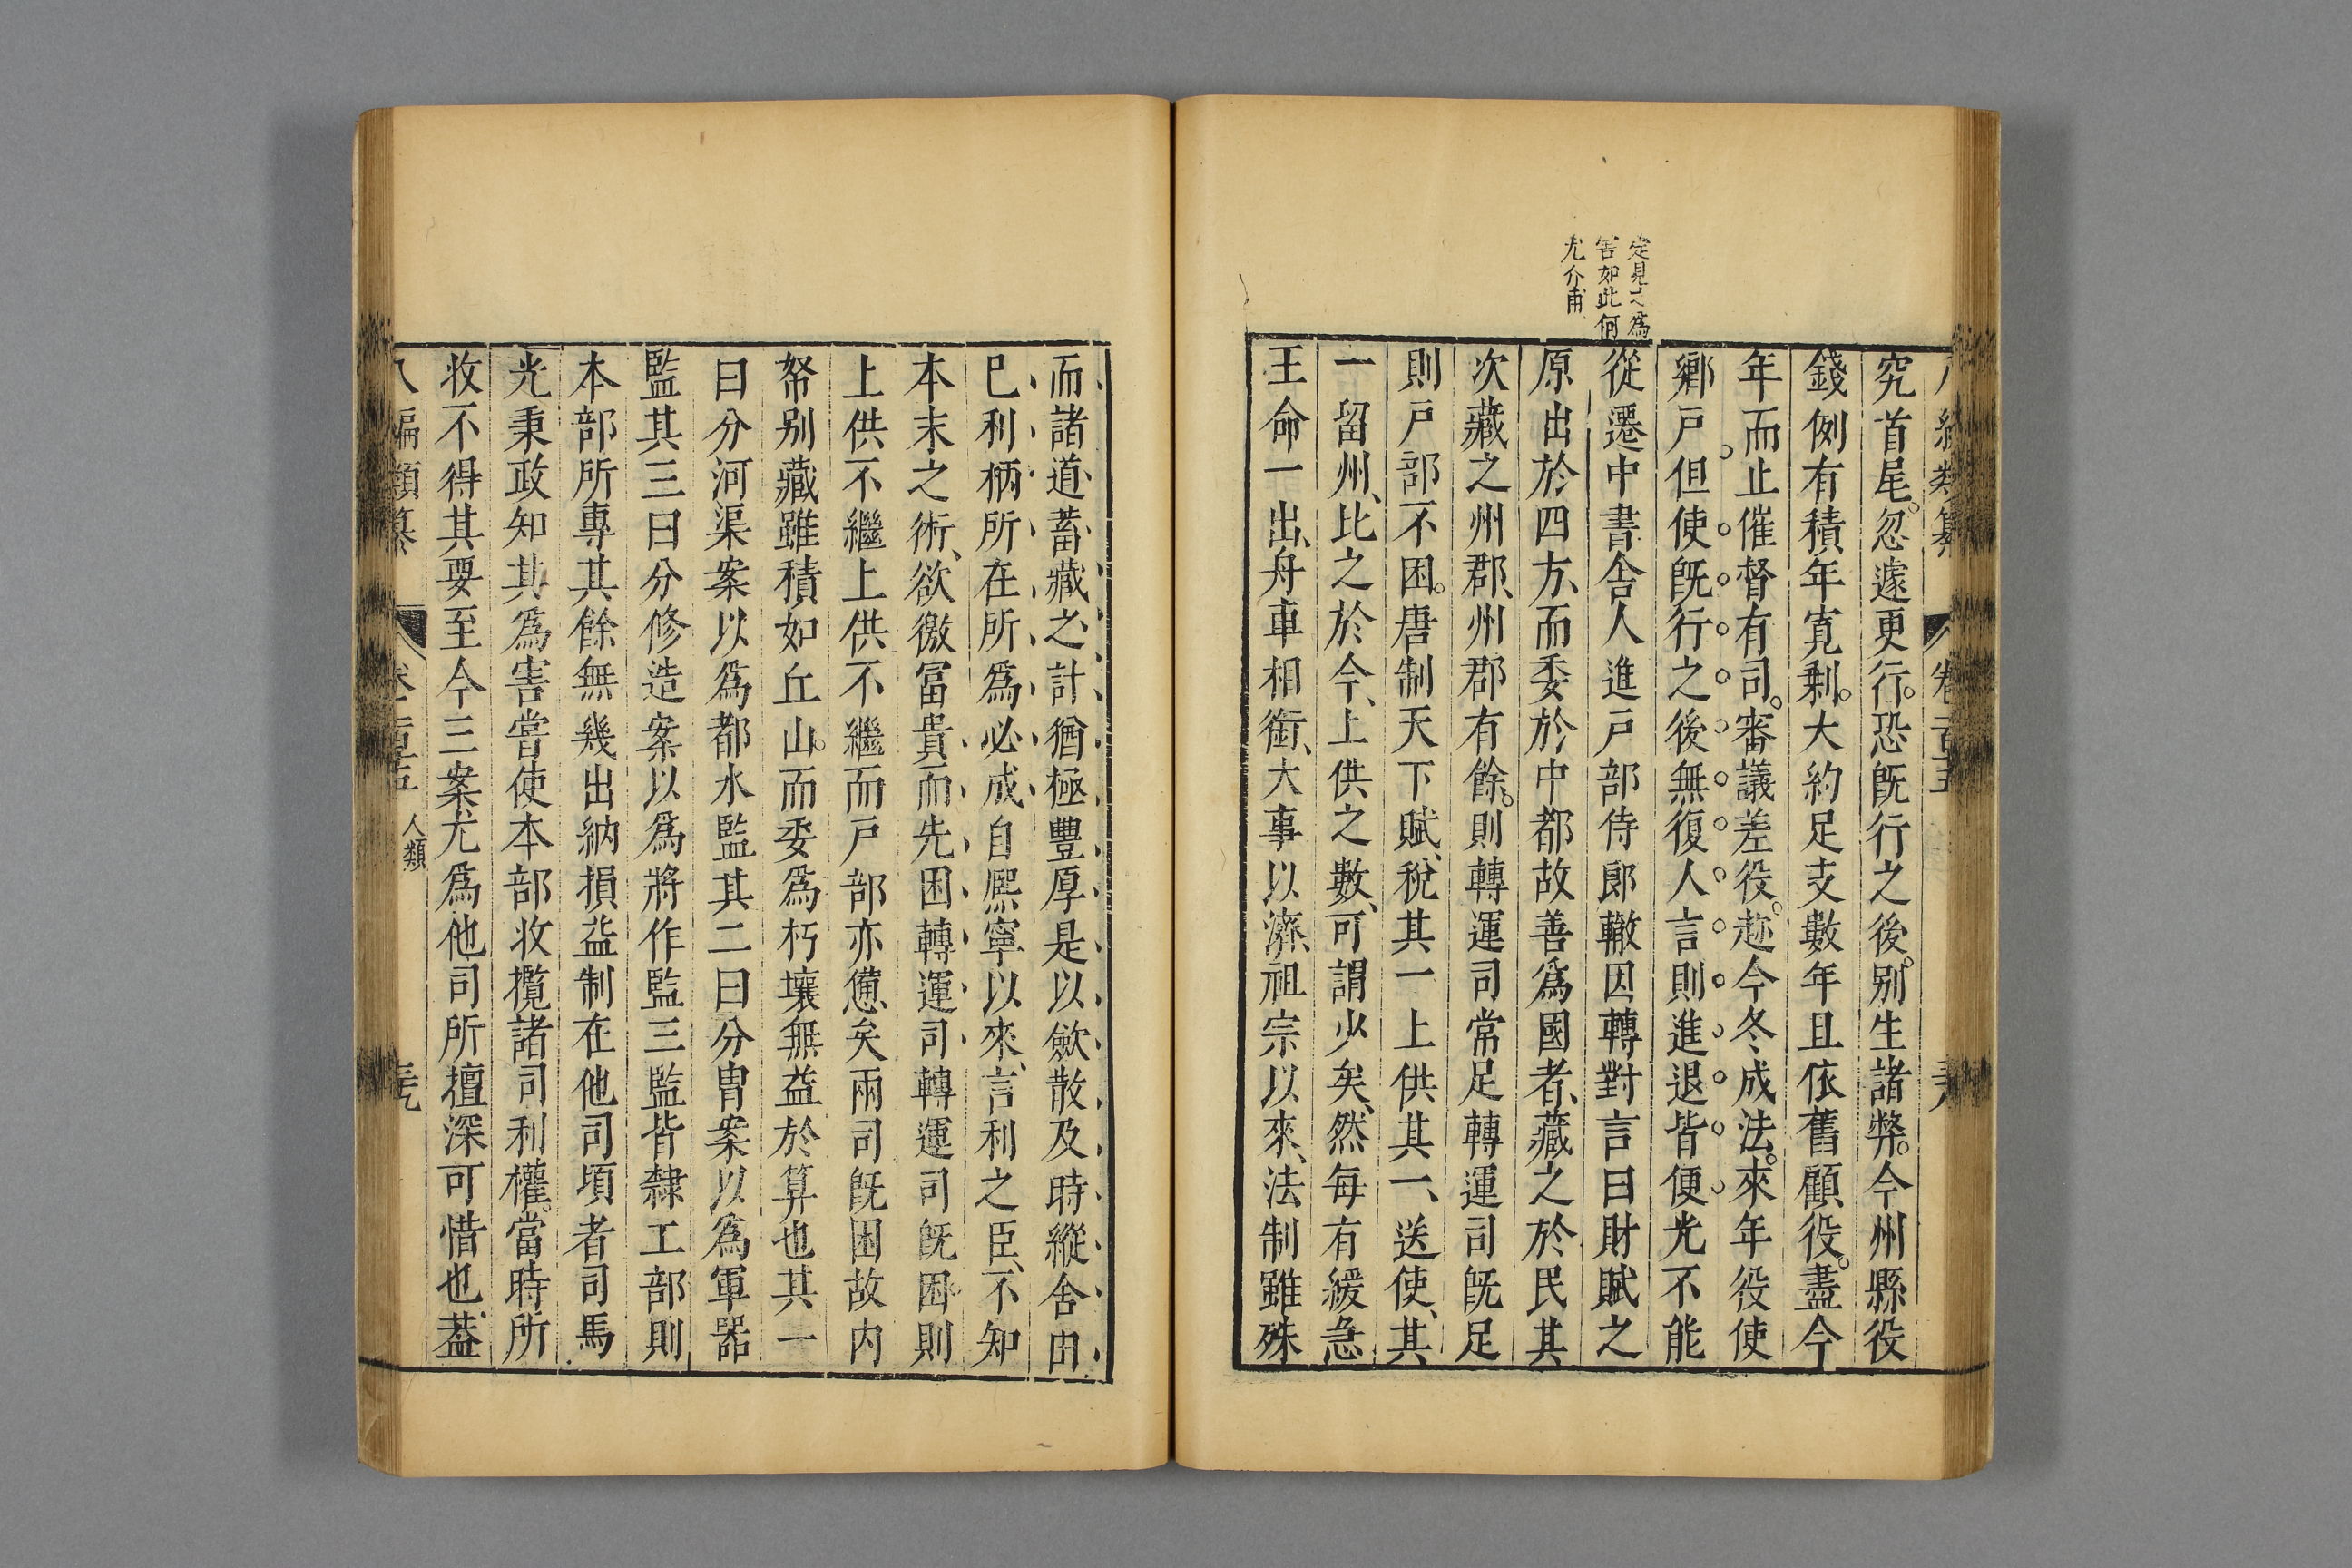 定見之爲
害如此何
尤介甫
究首尾。忽遽更行。恐旣行之後。別生諸弊。今州縣役
錢例有積年寬剩。大約足支數年且依舊顧役。盡今
年而止催督有司。審議差役。趂今冬成法。來年役使
鄉戶但使旣行之後無復人言則進退皆便光不能
從遷中書舍人進戶部侍郎轍因轉對言曰財賦之
原出於四方、而委於中都故善爲國者、藏之於民其
次藏之州郡、州郡有餘。則轉運司常足轉運司旣足
則戶部不困。唐制天下賦、稅其一上供其一、送使、其
一留州、比之於今、上供之數、可謂少矣、然每有緩急
王命一出、舟車相銜、大事以濟、祖宗以來、法制雖殊
而諸道蓄藏之計猶極豐厚是以歛散及時縱舍由
巳利柄所在所爲必成自熈寧以來、言利之臣、不知
本末之術、欲徼冨貴而先困轉運司轉運司旣困則
上供不繼上供不繼而戶部亦憊矣兩司旣困故內
帑別藏雖積如丘山。而委爲朽壤無益於算也其一
曰分河渠案以爲都水監其二曰分冑案以爲軍器
監其三曰分修造案以爲將作監三監皆隸工部則
本部所專其餘無幾出納損益制在他司頃者司馬
光秉政知其爲害嘗使本部收攬諸司利權。當時所
收不得其要至今三案尤爲他司所擅深可惜也、蓋
八編類纂 卷一百五 人類